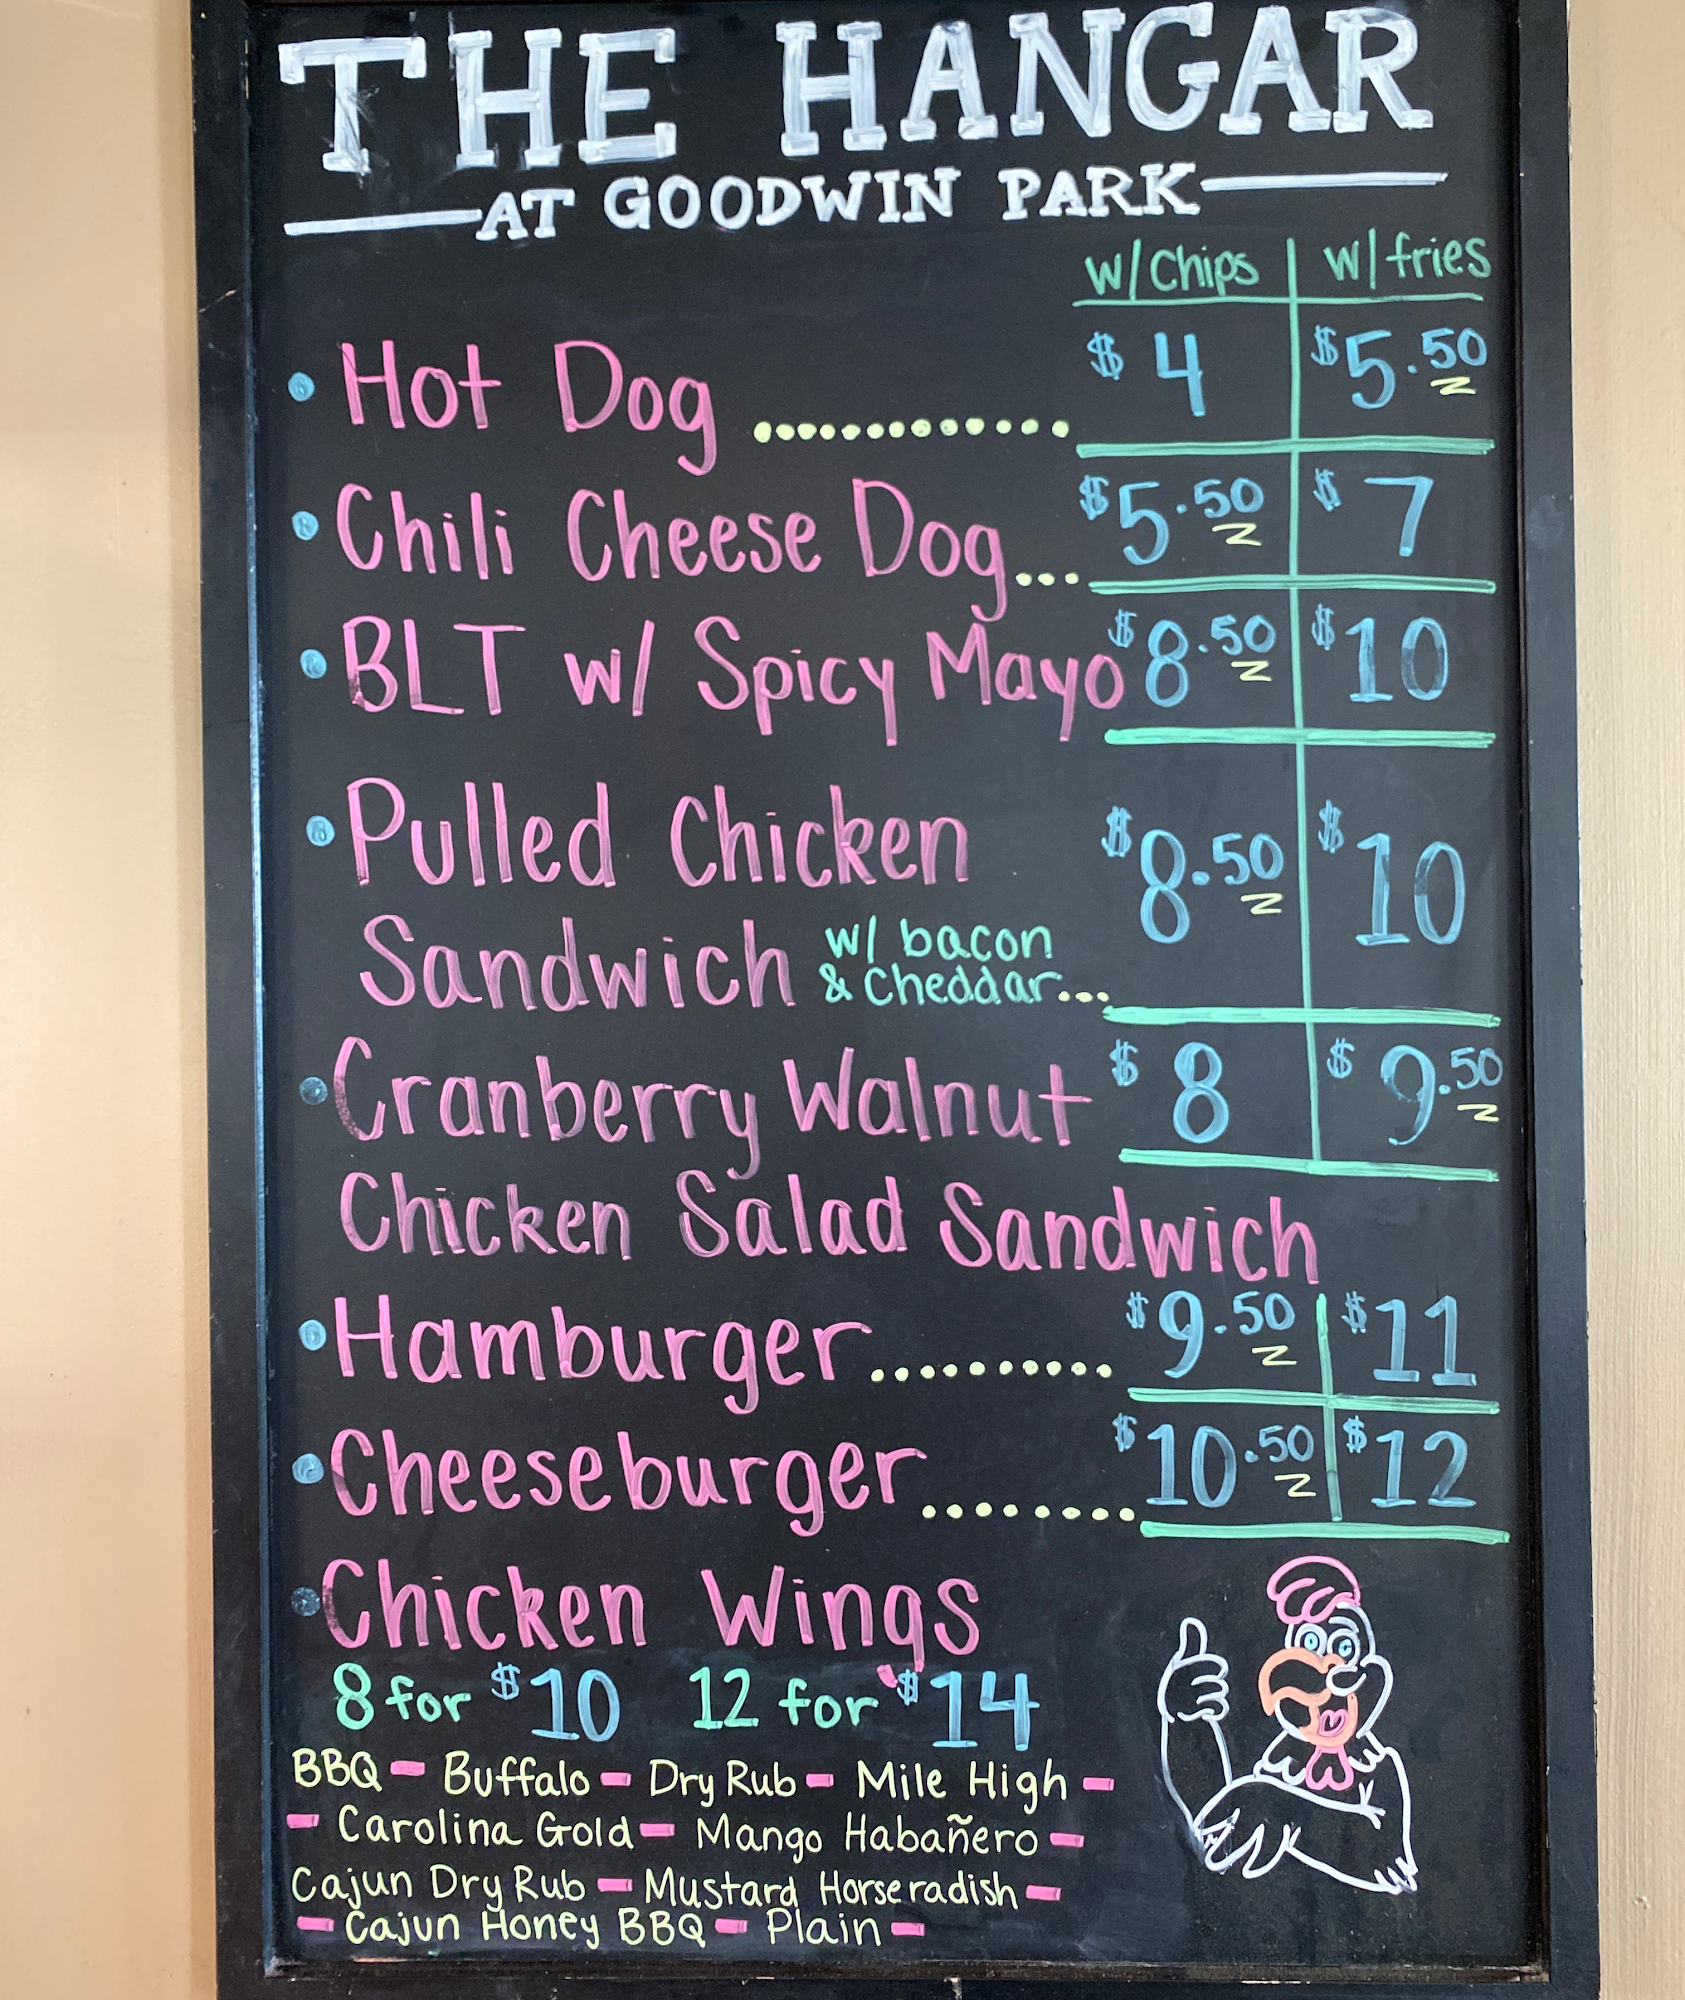 THE HANGAR
AT GOODWIN PARK
w/ Chips w/ fries
• Hot Dog ............ $4 $5.50
• Chili Cheese Dog... $5.50 $7
• BLT w/ Spicy Mayo $8.50 $10
• Pulled Chicken $8.50 $10
Sandwich w/ bacon
& Cheddar...
• Cranberry Walnut $8 $9.50
Chicken Salad Sandwich
• Hamburger.......... $9.50 $11
• Cheeseburger........ $10.50 $12
• Chicken Wings
8 for $10 12 for $14
BBQ - Buffalo - Dry Rub - Mile High -
- Carolina Gold - Mango Habañero -
Cajun Dry Rub - Mustard Horseradish -
- Cajun Honey BBQ - Plain -